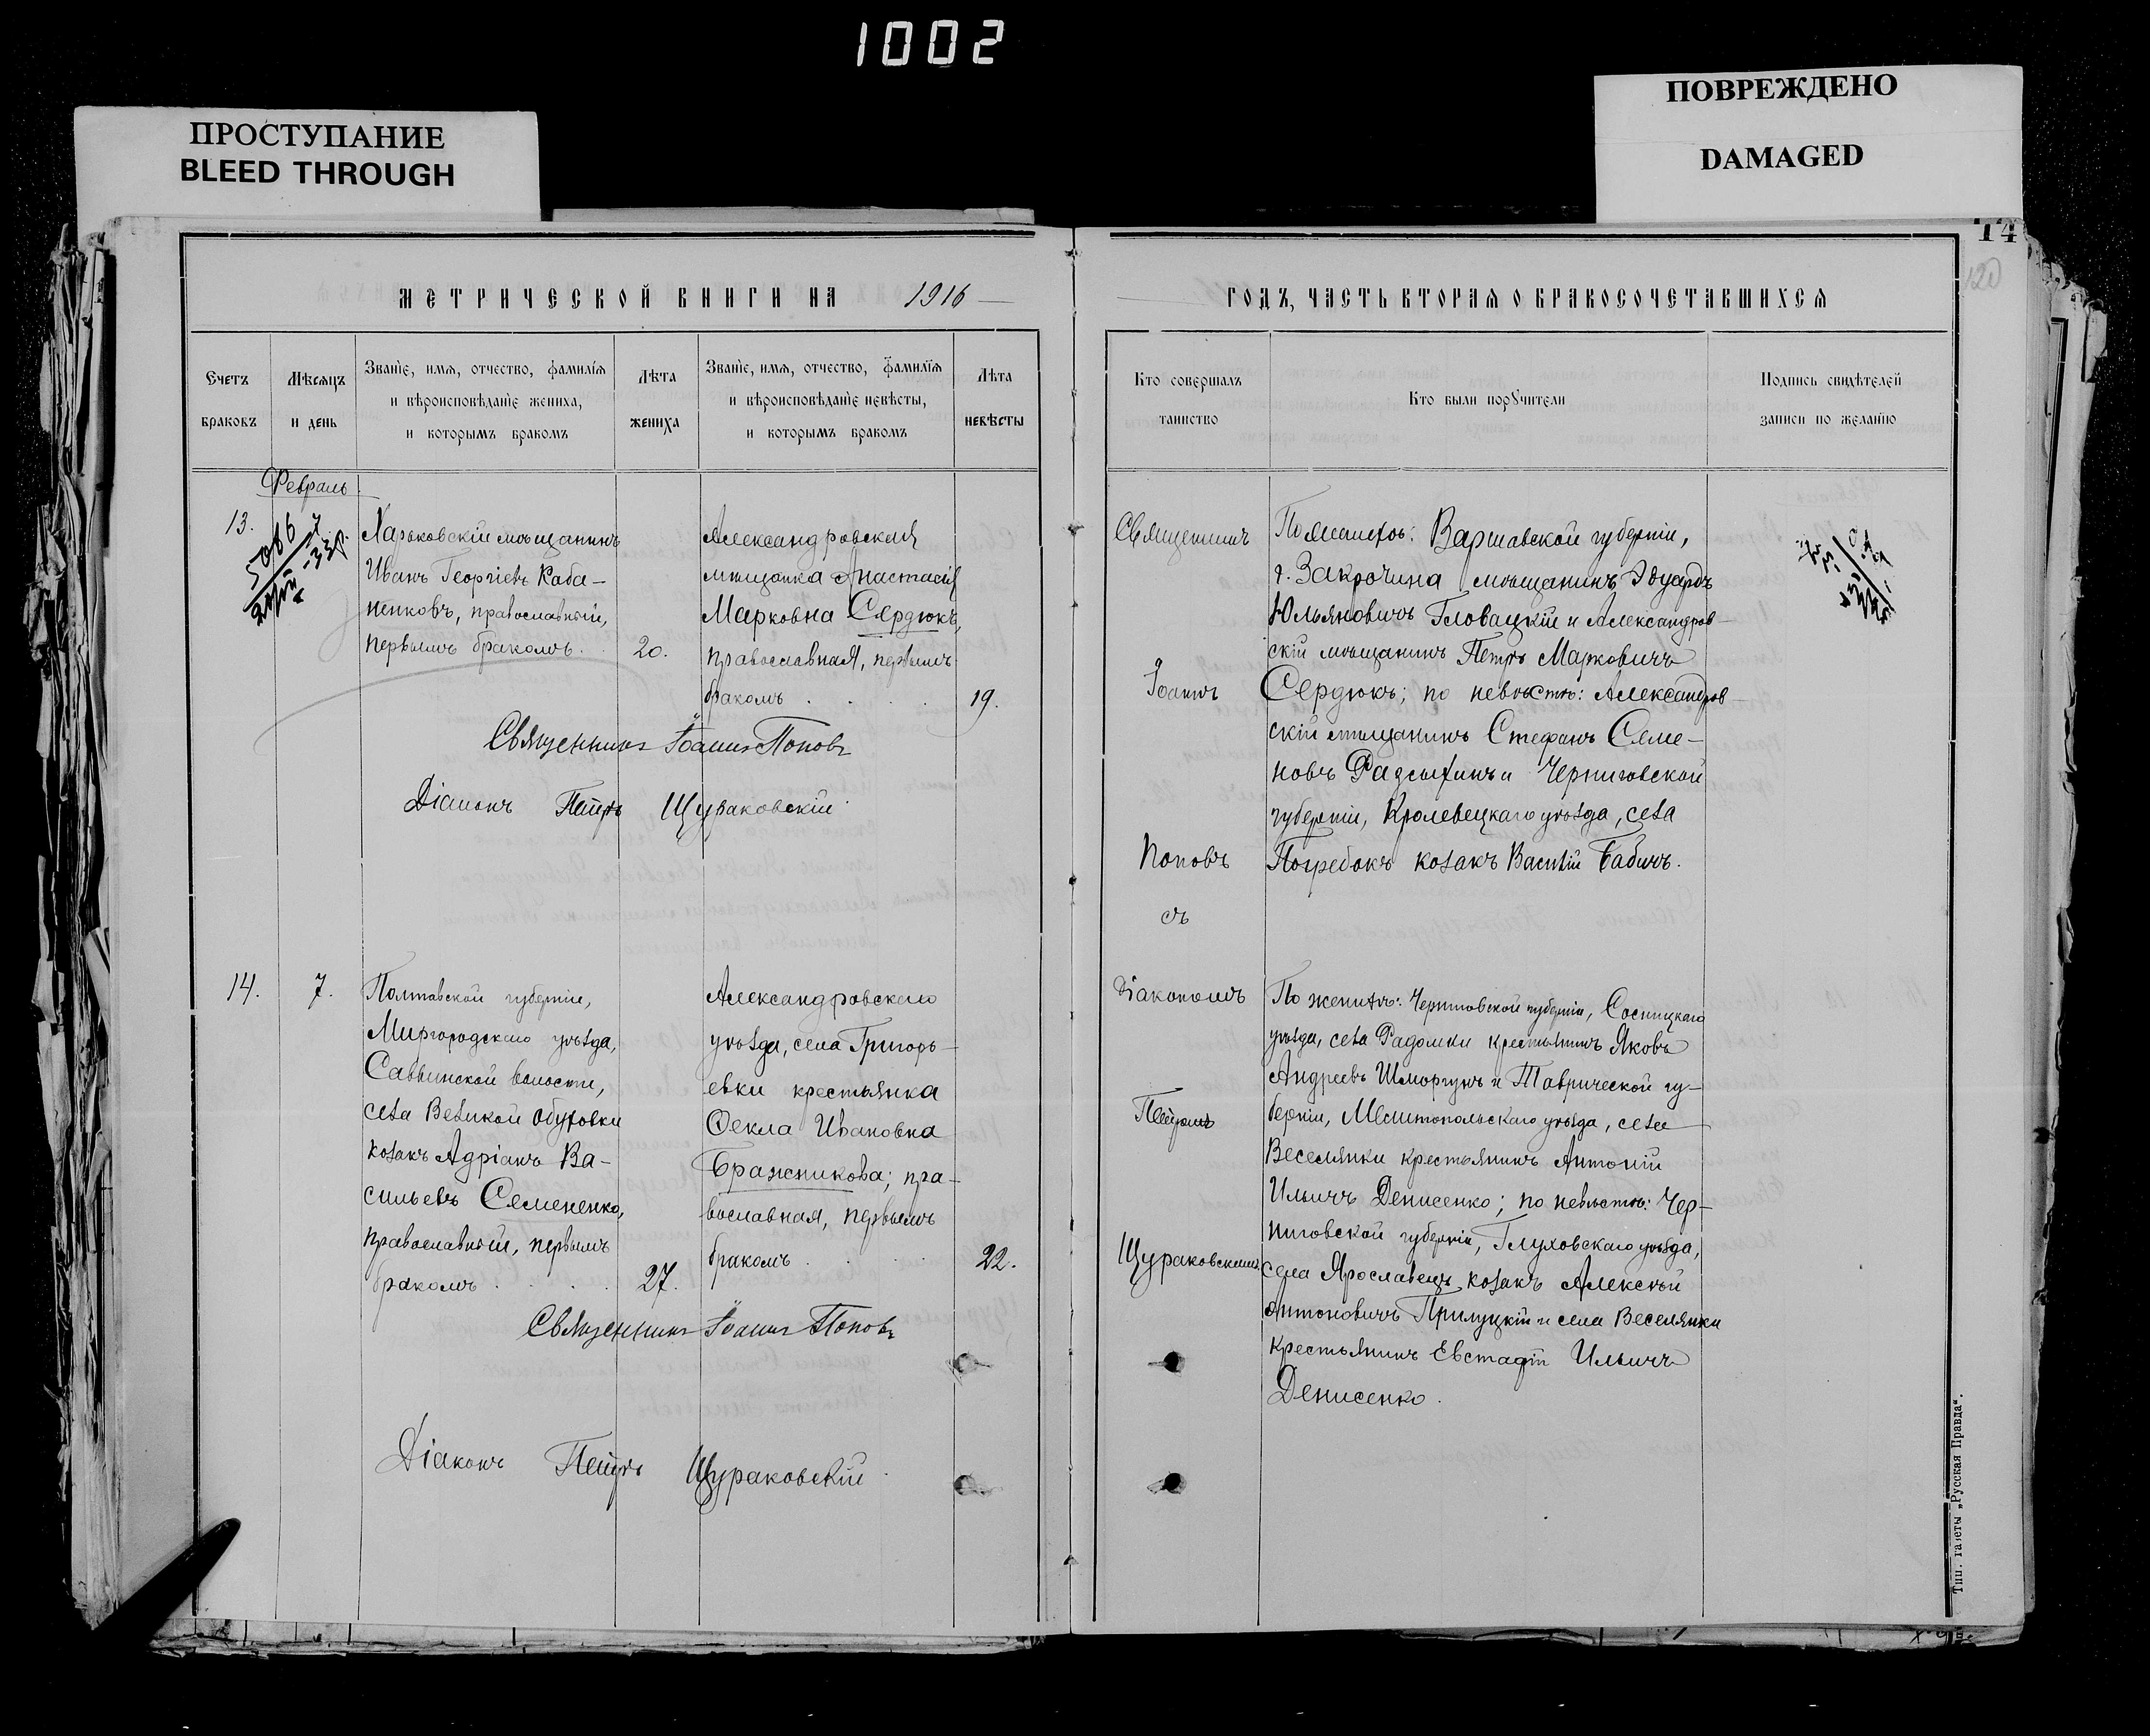 1002
ПРОСТУПАНИЕ
BLEED THROUGH
ПОВРЕЖДЕНО
DAMAGED
14
120
МЕТРИЧЕСКОЙ КНИГИ НА 1916
Счетъ
браковъ
Мѣсяцъ
и день
Званіе, имя, отчество, фамилія
и вѣроисповѣданіе жениха,
и которымъ бракомъ
Лѣта
жениха
Званіе, имя, отчество, фамилія
и вѣроисповѣданіе невѣсты,
и которымъ бракомъ
Лѣта
невѣсты
Февраль
13.
7.
Харьковскій мѣщанинъ
Иванъ Георгіевъ Каба-
ненковъ, православный,
первымъ бракомъ.
20.
Александровская
мѣщанка Анастасія
Марковна Сердюкъ,
православная, первымъ
бракомъ
19.
Священникъ Іоаннъ Поповъ
Діаконъ Петръ Щураковскій
14.
7.
Полтавской губерніи,
Миргородскаго уѣзда,
Саввинской волости,
села Великой Обуховки
козакъ Адріанъ Ва-
сильевъ Семененко,
православный, первымъ
бракомъ
27.
Александровскаго
уѣзда, села Григорь-
евки крестьянка
Ѳекла Ивановна
Бражникова; пра-
вославная, первымъ
бракомъ
22.
Священникъ Іоаннъ Поповъ
Діаконъ Петръ Щураковскій
ГОДЪ, ЧАСТЬ ВТОРАЯ О БРАКОСОЧЕТАВШИХСЯ
Кто совершалъ
таинство
Кто были поручители
Подпись свидѣтелей
записи по желанію
Священникъ
Іоаннъ
Поповъ
съ
Діакономъ
Петромъ
Щураковскимъ
По женихѣ: Варшавской губерніи,
г. Закрочина мѣщанинъ Эдуардъ
Юльяновичъ Гловацкій и Александров-
скій мѣщанинъ Петръ Марковичъ
Сердюкъ; по невѣстѣ: Александров-
скій мѣщанинъ Стефанъ Семе-
новъ и Черниговской
губерніи, Кролевецкаго уѣзда, села
Погребокъ козакъ Василій Бабичъ.
По женихѣ: Черниговской губерніи, Сосницкаго
уѣзда, села Радомки крестьянинъ Яковъ
Андреевъ Шморгунъ и Таврической гу-
берніи, Мелитопольскаго уѣзда, села
Веселянки крестьянинъ Антоній
Ильичъ Денисенко; по невѣстѣ: Чер-
ниговской губерніи, Глуховскаго уѣзда,
села Ярославецъ козакъ Алексѣй
Антоновичъ Прилуцкій и села Веселянки
крестьянинъ Евстафій Ильичъ
Денисенко.
Тип. газеты „Русская Правда“.